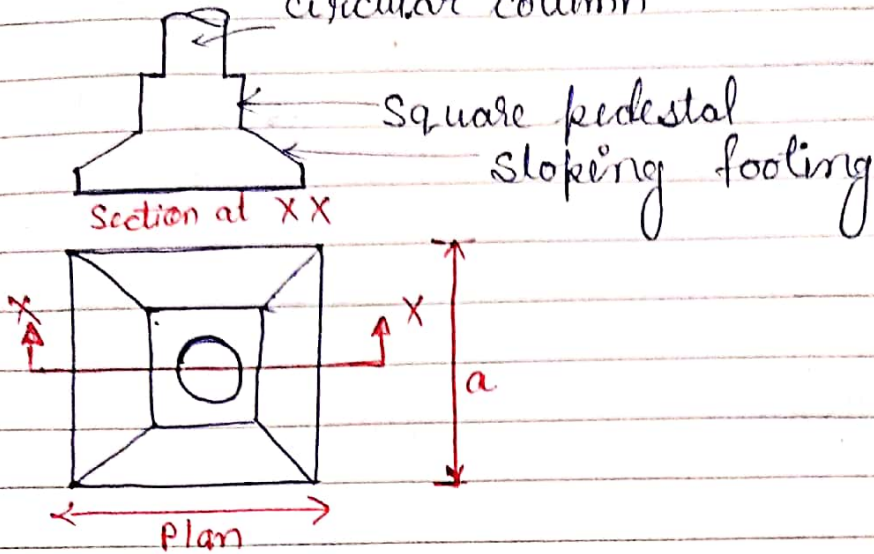 circular column
Square pedestal
Sloping footing
Section at X X
X
X
a
Plan